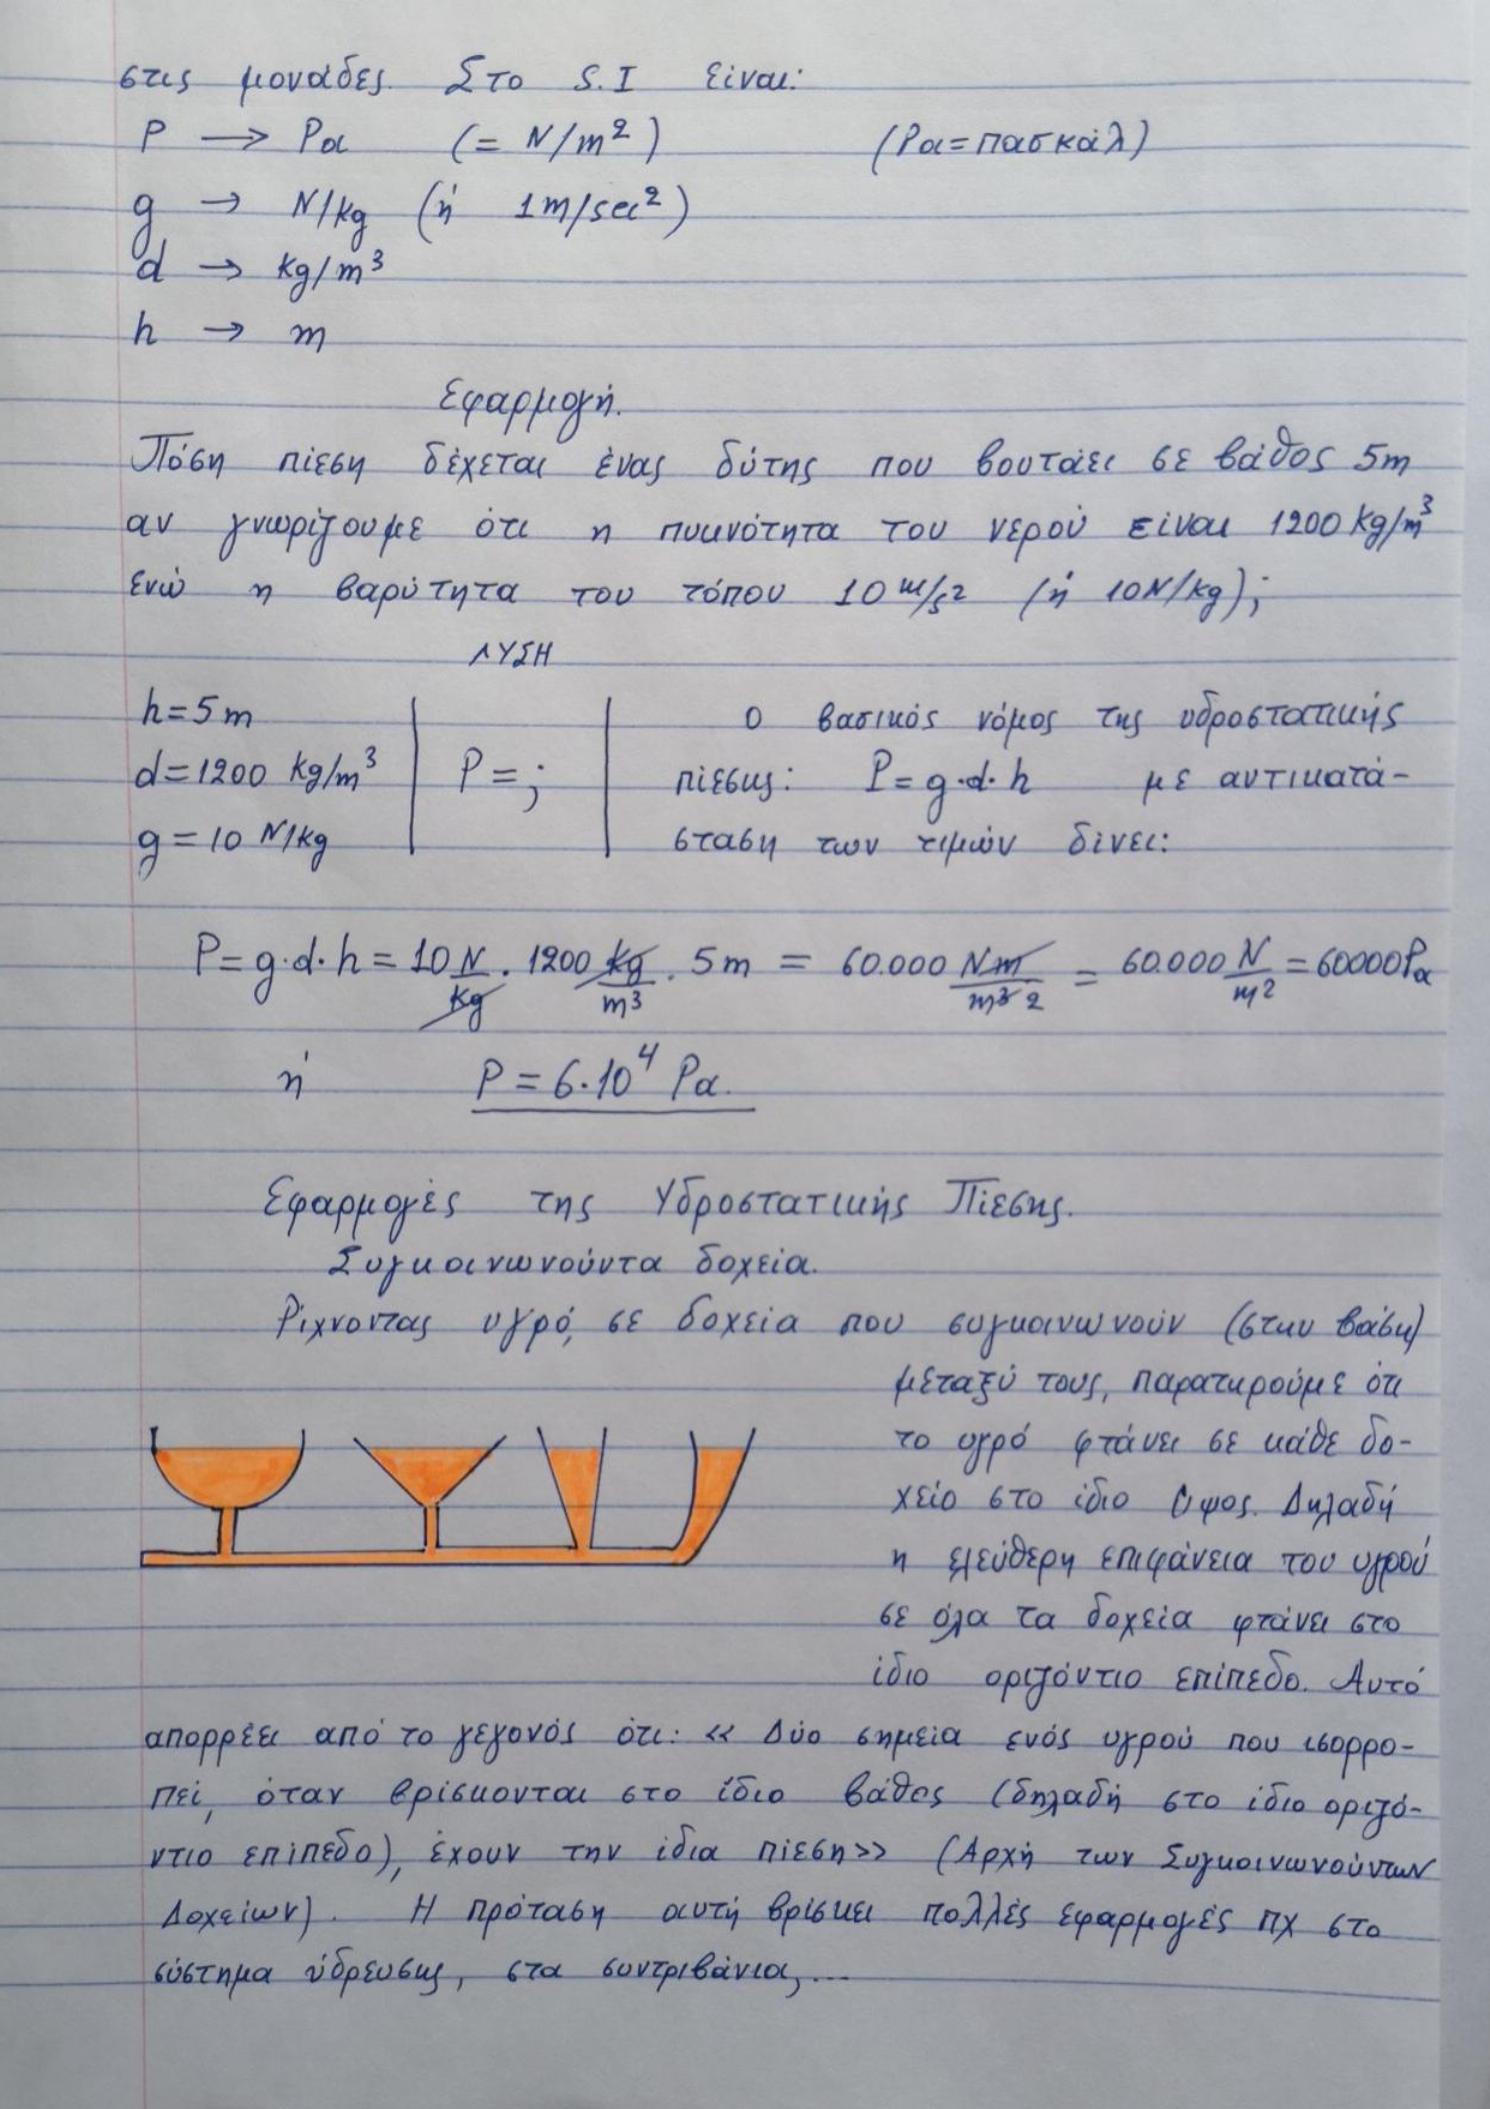 στις μονάδες. Στο S.I είναι:
P → Pa (= N/m²) (Pa=πασκάλ)
g → N/kg (ή 1m/sec²)
d → kg/m³
h → m
Εφαρμογή.
Πόση πίεση δέχεται ένας δύτης που βουτάει σε βάθος 5m
αν γνωρίζουμε ότι η πυκνότητα του νερού είναι 1200 kg/m³
ενώ η βαρύτητα του τόπου 10 m/s² (ή 10N/kg);
ΛΥΣΗ
h=5m
d=1200 kg/m³
g=10 N/kg
P=;
Ο βασικός νόμος της υδροστατικής
πίεσης: P=g·d·h με αντικατά-
σταση των τιμών δίνει:
P=g·d·h = 10 N/kg · 1200 kg/m³ · 5m = 60.000 Nm/m³ 2 = 60.000 N/m² = 60000Pa
ή P=6·10⁴ Pa.
Εφαρμογές της Υδροστατικής Πίεσης.
Συγκοινωνούντα δοχεία.
Ρίχνοντας υγρό, σε δοχεία που συγκοινωνούν (στην βάση)
μεταξύ τους, παρατηρούμε ότι
το υγρό φτάνει σε κάθε δο-
χείο στο ίδιο ύψος. Δηλαδή
η ελεύθερη επιφάνεια του υγρού
σε όλα τα δοχεία φτάνει στο
ίδιο οριζόντιο επίπεδο. Αυτό
απορρέει από το γεγονός ότι: << Δύο σημεία ενός υγρού που ισορρο-
πεί, όταν βρίσκονται στο ίδιο βάθος (δηλαδή στο ίδιο οριζό-
ντιο επίπεδο), έχουν την ίδια πίεση>> (Αρχή των Συγκοινωνούντων
Δοχείων). Η πρόταση αυτή βρίσκει πολλές εφαρμογές πχ στο
σύστημα ύδρευσης, στα συντριβάνια,...